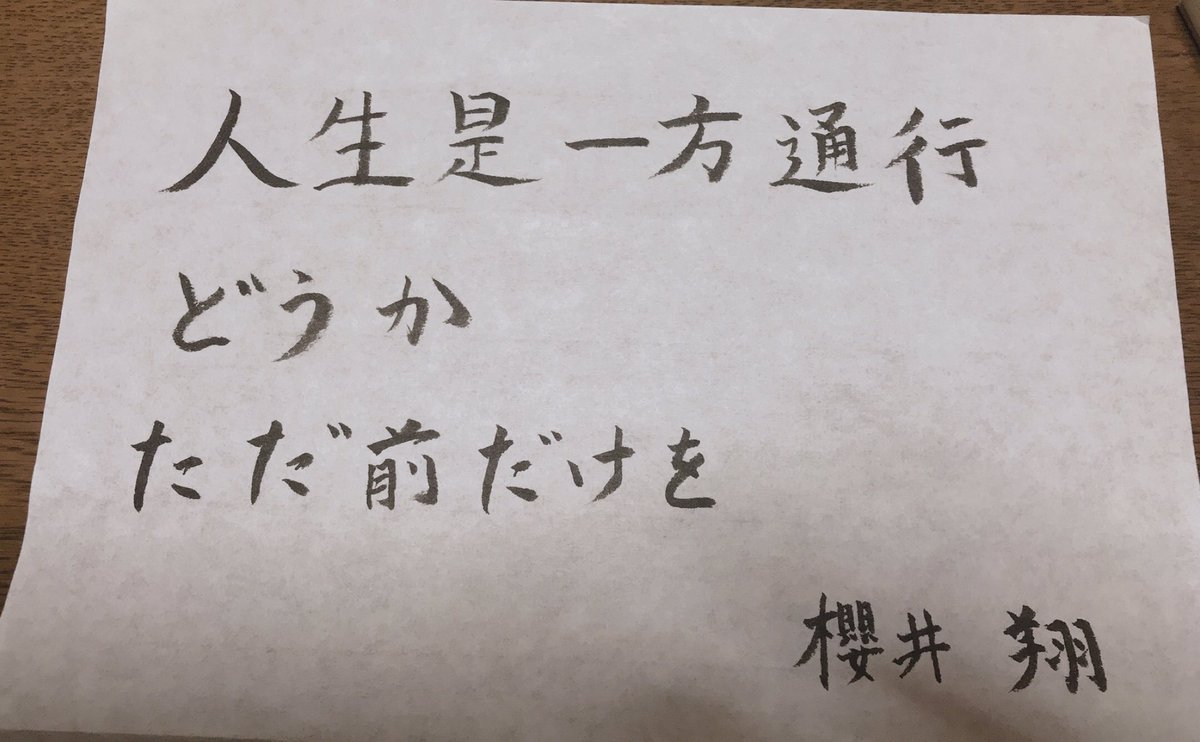 人生是一方通行
どうか
ただ前だけを
櫻井 翔